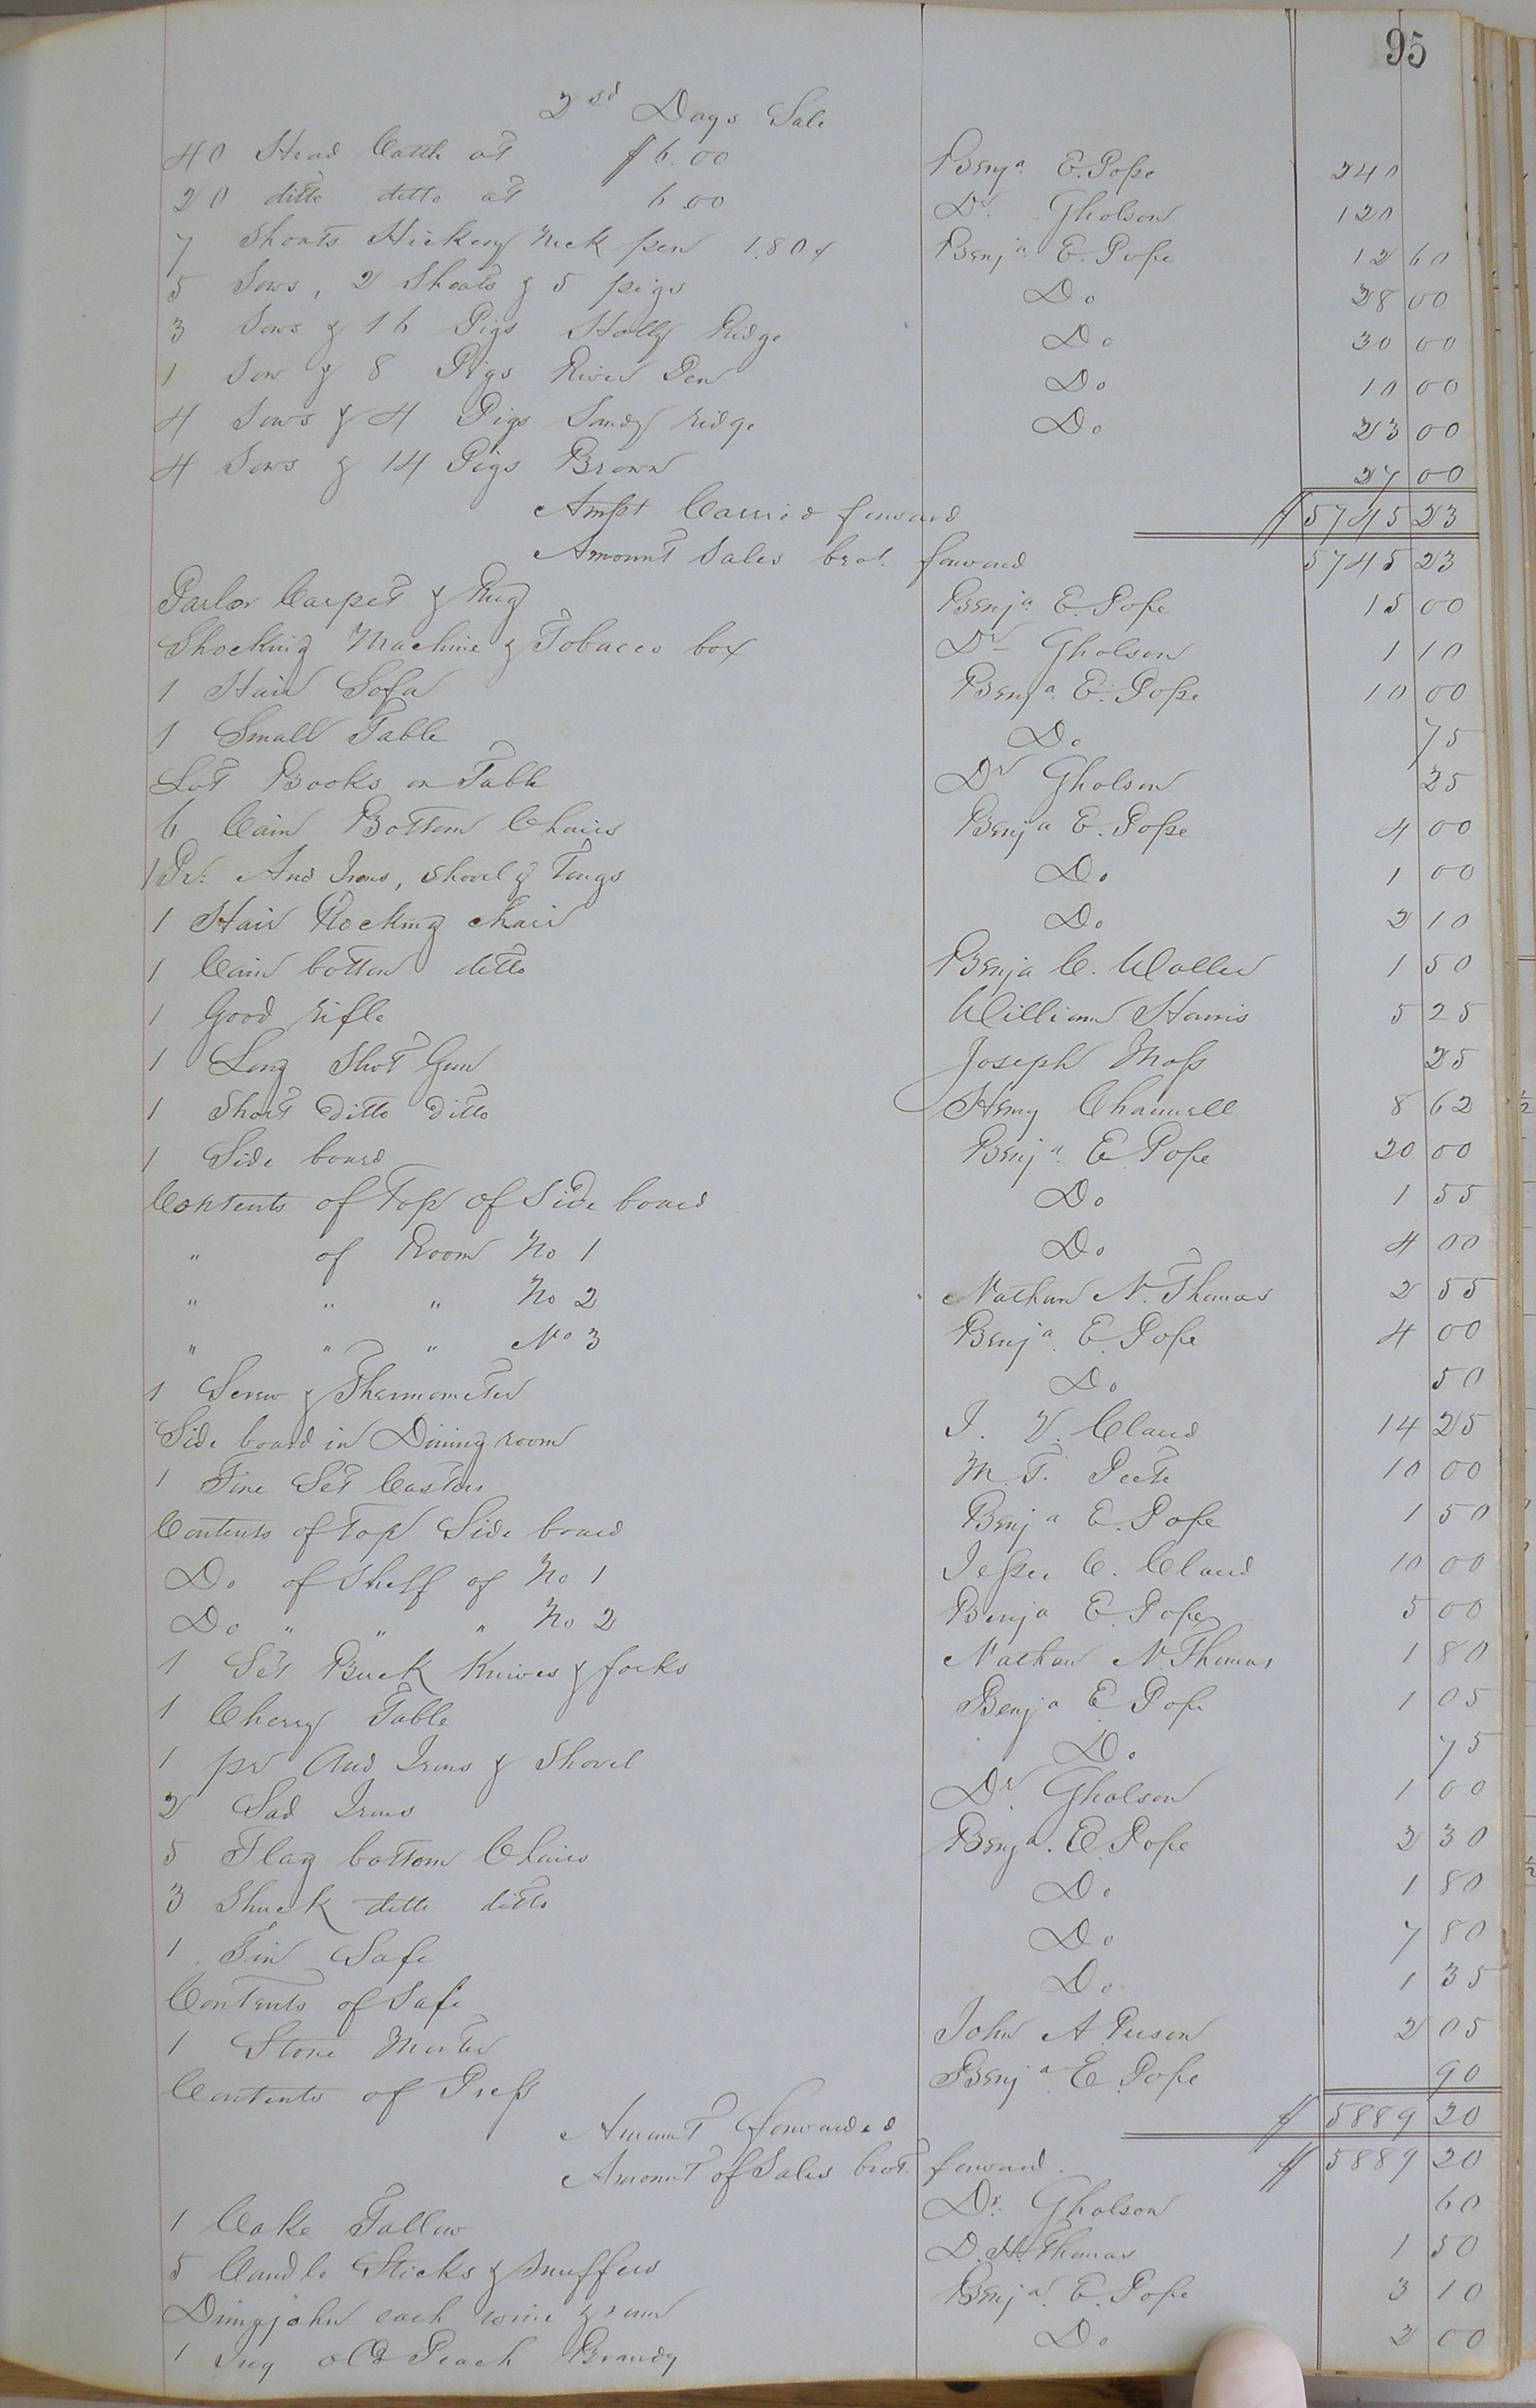 95
2nd Days Sale
40 Head Cattle at $6.00 Benja E. Pope 240
20 ditto ditto at 6.00 Dr. Gholson 120
7 Shoats Hickory Neck pen 1.80 Benja E. Pope 12 60
5 Sows, 2 Shoats & 5 pigs Do 28 00
3 Sows & 16 Pigs Holly Ridge Do 30 00
1 Sow & 8 Pigs River Pen Do 10 00
4 Sows & 4 Pigs Sandy ridge Do 23 00
4 Sows & 14 Pigs Brown 27 00
Amt Carried forward $ 5745 23
Amount Sales brot. forward 5745 23
Parlor Carpet & Rug Benja E. Pope 15 00
Shocking Machine & Tobacco box Dr Gholson 1 10
1 Hair Sofa Benja. E. Pope 10 00
1 Small Table Do 75
Lot Books on Table Dr Gholson 25
6 Cain Bottom Chairs Benja E. Pope 4 00
1 Pr. And Irons, Shovel & Tongs Do 1 00
1 Hair Rocking chair Do 2 10
1 Cain bottom ditto Benja C. Waller 1 50
1 Good rifle William Harris 5 25
1 Long Shot Gun Joseph Moss 25
1 Short Ditto Ditto Henry Channell 8 62
1 Side board Benja. E. Pope 20 00
Contents of Top of Side board Do 1 55
" of Room No 1 Do 4 00
" " " No 2 Nathan N. Thomas 2 55
" " " No 3 Benja. E. Pope 4 00
1 Screw & Thermometer Do 50
Side board in Dining room J. V. Claud 14 25
1 Fine Set Castors M. T. Peete 10 00
Contents of Top Side board Benja E. Pope 1 50
Do of Shelf of No 1 Jesse C. Claud 10 00
Do " " " No 2 Benja E. Pope 5 00
1 Set Buck Knives & forks Nathan N. Thomas 1 80
1 Cherry Table Benja E Pope 1 05
1 pr And Irons & Shovel Do 75
2 Sad Irons Dr. Gholson 1 00
5 Flag bottom Chairs Benja. E. Pope 2 30
3 Shuck ditto ditto Do 1 80
1 Tin Safe Do 7 80
Contents of Safe Do 1 35
1 Stone Morter John A Person 2 05
Contents of Press Benja E. Pope 90
Amount forwarded $ 5889 20
Amount of Sales brot. forward $ 5889 20
1 Cake Tallow Dr. Gholson 60
5 Candle Sticks & Snuffers D. H. Thomas 1 50
Dimyjohn each wine & rum Benja. E. Pope 3 10
1 Jug old Peach Brandy Do 2 00